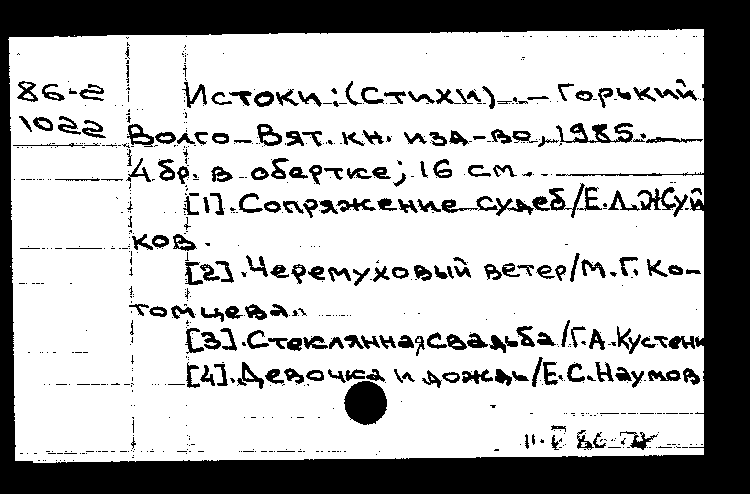 86-2 Истоки: (Стихи). — Горький:
1022 Волго-Вят. кн. изд-во, 1985. —
4 бр. в обертке; 16 см.
[1]. Сопряжение судеб/Е.Л.Жуй
ков.
[2]. Черемуховый ветер/М.Г. Ко-
томцева.
[3]. Стеклянная свадьба/Г.А. Кустенк
[4]. Девочка и дождь/Е.С. Наумов
11.